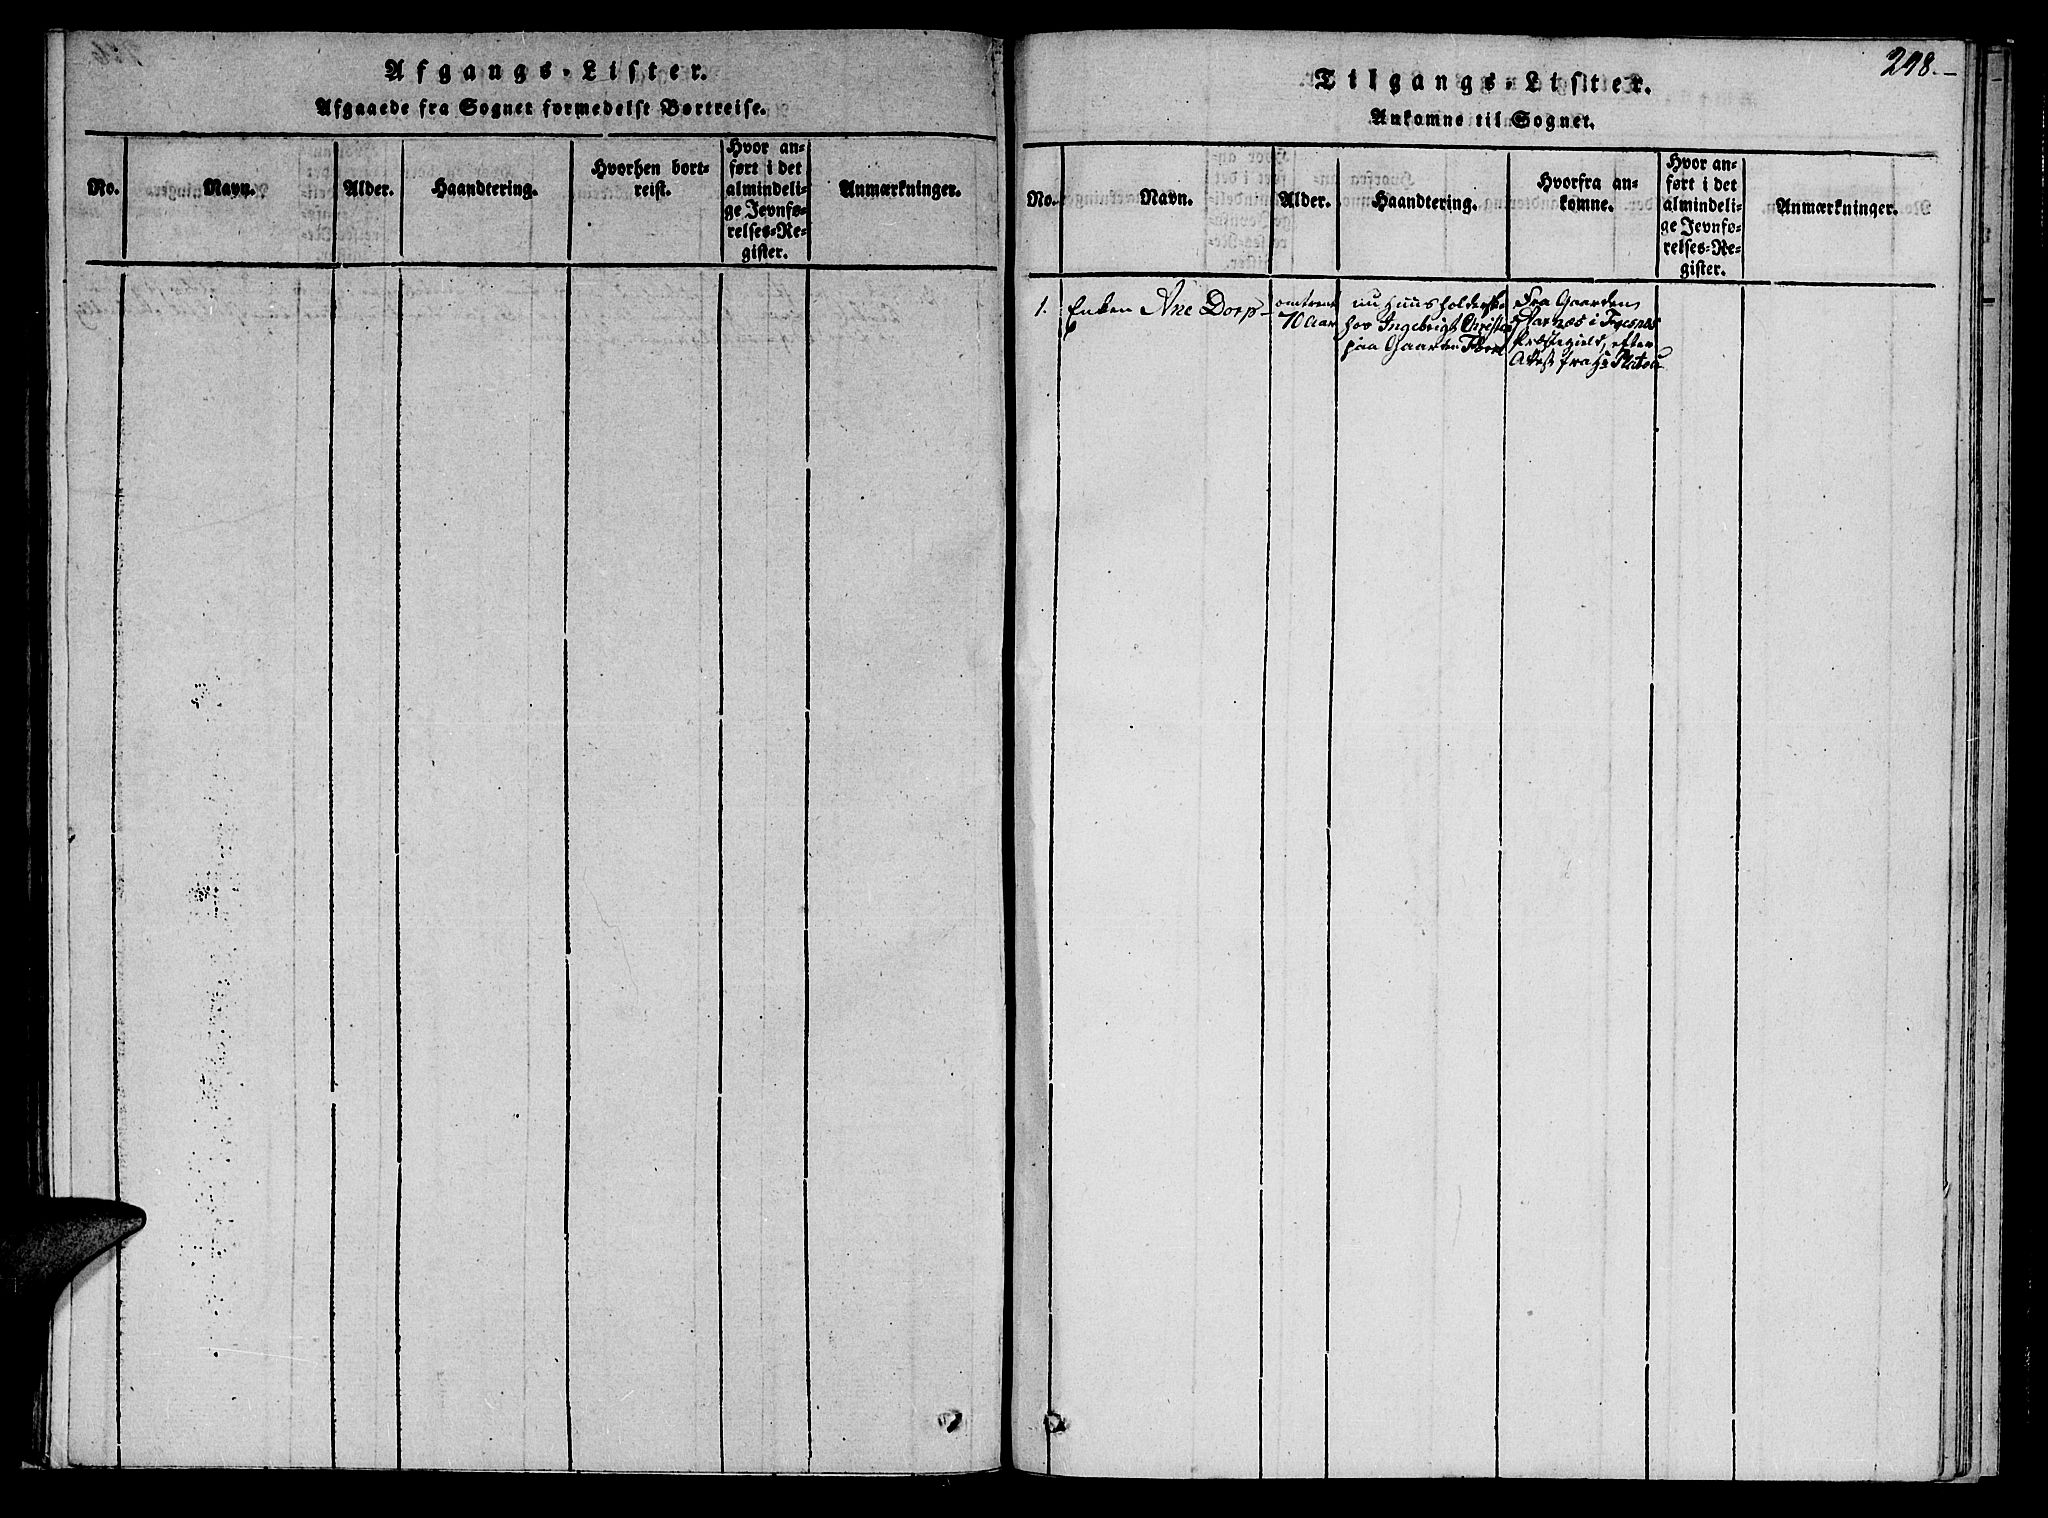 Afgangs-Lister.
Afgaaede fra Sognet formedelst Bortreise.
No.
Navn.
Alder.
Haandtering.
Hvorhen bort-
reist.
Hvor an-
ført i det
almindeli-
ge Jevnfø-
relses-Re-
gister.
Anmærkninger.
298.
Tilgangs-Lister.
Ankomne til Sognet.
No.
Navn.
Alder.
Haandtering.
Hvorfra an-
komne.
Hvor an-
ført i det
almindeli-
ge Jevnfø-
relses-Re-
gister.
Anmærkninger.
1.
Enken Ane Dorp
omtrent
70 Aar
nu Huusholderske
hos Ingebrigt
paa Gaarden
Fra Gaarden
i
Præstegield, efter
Attest fra Hr